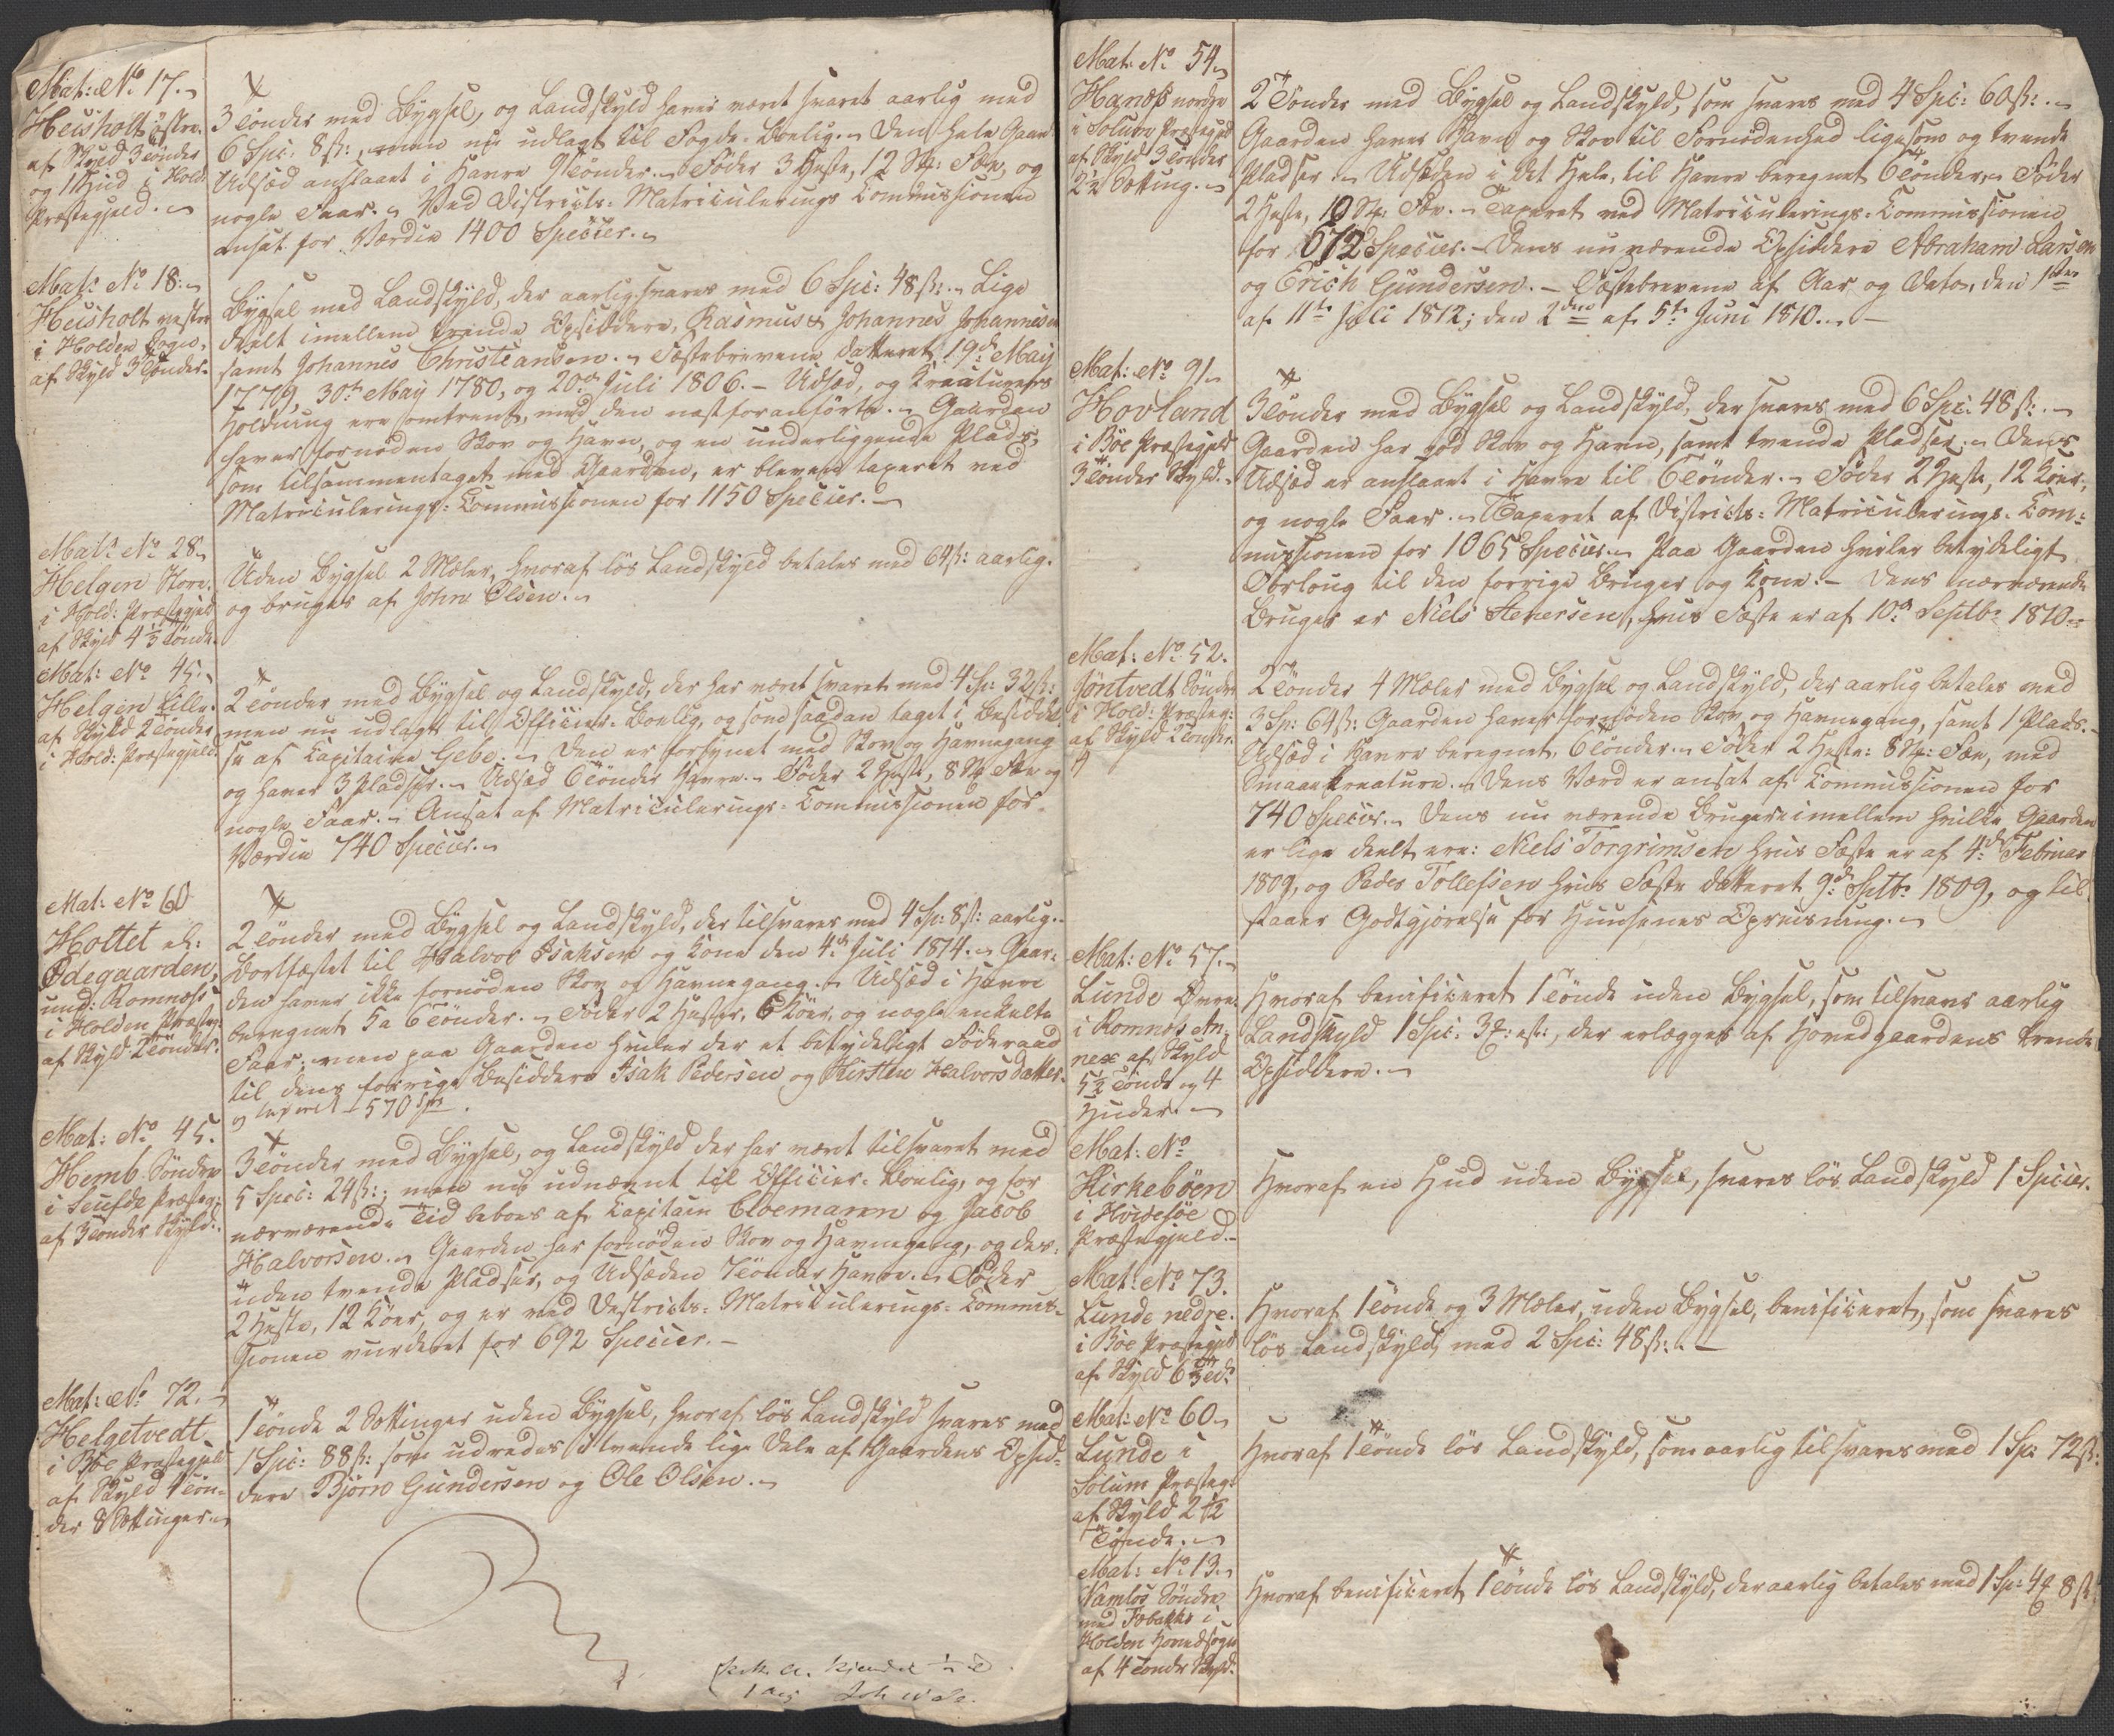 Mat: No 17.
Heisholt østre.
af Skyld 3 Tönder
og 1 Hud i Hold:
Præstegjeld.
3 Tönder med Bygsel, og Landskyld haver været svaret aarlig med
6 Spc: 8 ß:, men nu udlagt til Fogde-Bolig. Den hele Gaards
Udsæd anslaaet i Havre 9 Tönder. Föder 3 Heste, 12 St: Fæe, og
nogle Faar. Ved Districts-Matriculerings Commissionen
ansat for Værdie 1400 Specier.
Mat: No 18.
Heisholt vestre
i Holden Sogn,
af Skyld 3 Tönder.
Bygsel med Landskyld, der aarlig svares med 6 Spc: 48 ß: Lige
deelt imellem trende Opsiddere, Rasmus & Johannes Johannesen
samt Johannes Christiansen. Fæstebrevene datteret 19de May
1779, 30te May 1780, og 20de Juli 1806. Udsæd, og Kreaturers
Holdning ere omtrent, med den næstforanførte. Gaarden
haver fornöden Skov og Havn, og en underliggende Plads,
som tilsammentaget med Gaarden, er bleven taxeret ved
Matriculerings-Commissionen for 1150 Specier.
Mat: No 28
Helgen Store.
i Hold: Præstegjeld
af Skyld 4 1/3 Tönde.
Uden Bygsel 2 Mæler, hvoraf lös Landskyld betales med 64 ß: aarlig.
og bruges af John Olsen.
Mat: No 45.
Helgen Lille.
af Skyld 2 Tönder
i Hold: Præstegjeld.
2 Tönder med Bygsel og Landskyld, der har været svaret med 4 Sp: 32 ß:
men nu udlagt til Officier-Boelig, og som saadan taget i Besiddel-
se af Capitaine Gebe. Den er forsynet med Skov og Havnegang
og haver 3 Pladser. Udsæd 6 Tönder Havre. Föder 2 Heste, 8 St: Fæe og
nogle Faar. Ansat af Matriculerings-Commissionen for
Værdie 740 Specier.
Mat: No 60
Hottet el:
Ødegaarden,
und: Romnæss
i Holden Præsteg:
af Skyld 2 Tönder.
2 Tönder med Bygsel og Landskyld, der tilsvares med 4 Sp: 8 ß: aarlig.
Bortfæstet til Halvor Isaksen og Kone den 4de Juli 1814. Gaar-
den haver ikke fornöden Skov og Havnegang. Udsæd i Havre
beregnet 5 a 6 Tönder. Föder 2 Heste, 6 Köer, og nogle enkelte
Faar; men paa Gaarden hviler der et betydeligt Föderaad
til dens forrige Besiddere Isak Pedersen og Kirsten Halvorsdatter.
og taxeret 570 Spr.
Mat: No 45.
Hemb Söndre
i Seufde Præsteg:
af 3 Tönder Skyld.
3 Tönder med Bygsel, og Landskyld der har været tilsvaret med
5 Spec: 24 ß:; men nu udnævnt til Officier-Boelig, og for
nærværende Tid beboes af Capitain Cloemann og Jacob
Halvorsen. Gaarden har fornöden Skov og Havnegang, og des-
uden tvende Pladser, og Udsæden 7 Tönder Havre. Föder
2 Heste, 12 Köer, og er ved Districts-Matriculerings-Commis-
sionen vurderet for 692 Specier.
Mat: No 72.
Helgetvedt
i Böe Præstegjeld
af Skyld 4 Tön-
der 8 Settinger.
1 Tönde 2 Settinger uden Bygsel, hvoraf lös Landskyld svares med
1 Spc: 88 ß: som udredes i tvende lige Dele af Gaardens Opsid-
dere Björn Gundersen og Ole Olsen.
Mat: No 54
Hanæss nordre
i Solum Præstegjeld
af Skyld 3 Tönder
2 1/2 Setting.
2 Tönder med Bygsel og Landskyld, som svares med 4 Spc: 60 ß:
Gaarden haver Havn og Skov til Fornödenhed ligesom og tvende
Pladser. Udsæden i det Hele, til Havre beregnet 6 Tönder. Föder
2 Heste, 10 St: Fæe. Taxeret ved Matriculerings-Commissionen
for 672 Specier. Dens nuværende Opsiddere Abraham Larsen
og Erich Gundersen. Fæstebrevene af Aar og Dato, den 1ste
af 11te Juli 1812; den 2den af 5te Juni 1810.
Mat: No 91
Hovland
i Böe Præstegjeld
3 Tönder Skyld.
3 Tönder med Bygsel og Landskyld, der svares med 6 Spc: 48 ß:
Gaarden har god Skov og Havn, samt tvende Pladser. Dens
Udsæd er anslaaet i Havre til 6 Tönder. Föder 2 Heste, 12 Köer,
og nogle Faar. Taxeret af Districts-Matriculerings-Com-
missionen for 1065 Specier. Paa Gaarden hviler betydeligt
Forlong til den forrige Bruger og Kone. Dens nærværende
Bruger er Niels Stenersen, hvis Fæste er af 10de Septbr 1810.
Mat: No 52.
Jöntvedt Söndre
i Hold: Præsteg:
af Skyld Tönder.
4
2 Tönder 4 Mæler med Bygsel og Landskyld, der aarlig betales med
3 Sp: 64 ß: Gaarden haver fornöden Skov og Havnegang, samt 1 Plads.
Udsæd i Havre beregnet 6 Tönder. Föder 2 Heste: 8 St: Fæe, med
Smaae Kreature. Dens Værd er ansat af Commissionen for
740 Specier. Dens nu værende Brugere imellem hvilke Gaarden
er lige deelt ere: Niels Torgrimsen hvis Fæste er af 4de Februar
1809, og Peder Tollefsen hvis Fæste datteret 9de Septbr 1809, og til
staaer Godtgjörelse for Huusenes Opreisning.
Mat: No 57.
Lunde Øvre.
i Romnæs An-
nex af Skyld
5 1/2 Tönde og 4
Huder.
Hvoraf benificeret 1 Tönde uden Bygsel, som tilsvares aarlig
Landskyld 1 Spc: 3 , der erlægges af Hovedgaardens trende
Opsiddere.
Mat: No
Kirkeböen
i Hvidesöe
Præstegjeld.
Hvoraf en Hud uden Bygsel, svares lös Landskyld 1 Specier.
Mat: No 73.
Lunde nedre.
i Böe Præstegjeld
af Skyld 6
Hvoraf 1 Tönde og 3 Mæler, uden Bygsel, benificeret, som svares
lös Landskyld, med 2 Spc: 48 ß:
Mat: No 60
Lunde i
Solum Præsteg:
af Skyld 2 1/2
Tönde.
Hvoraf 1 Tönde lös Landskyld, som aarlig tilsvares med 1 Sp: 72 ß:
Mat: No 13
Namlös Söndre
med i
Holden Hovedsogn
af 4 Tönder Skyld.
Hvoraf benificeret 1 Tönde lös Landskyld, der aarlig betales med 1 Sp: 4 8 ß